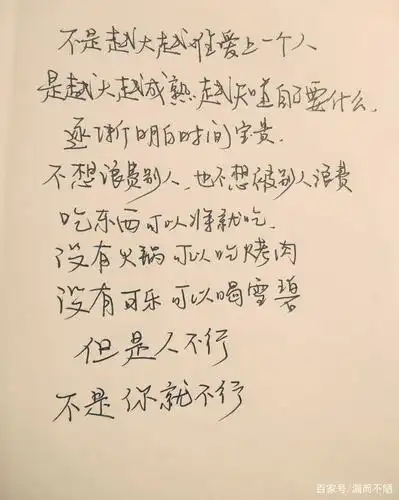 不是越大越难爱上一个人
是越大越成熟越知道自己要什么.
逐渐明白时间宝贵.
不想浪费别人,也不想被别人浪费
吃东西可以将就吃.
没有火锅可以吃烤肉
没有可乐可以喝雪碧
但是人不行
不是你就不行
百家号/漏而不陋